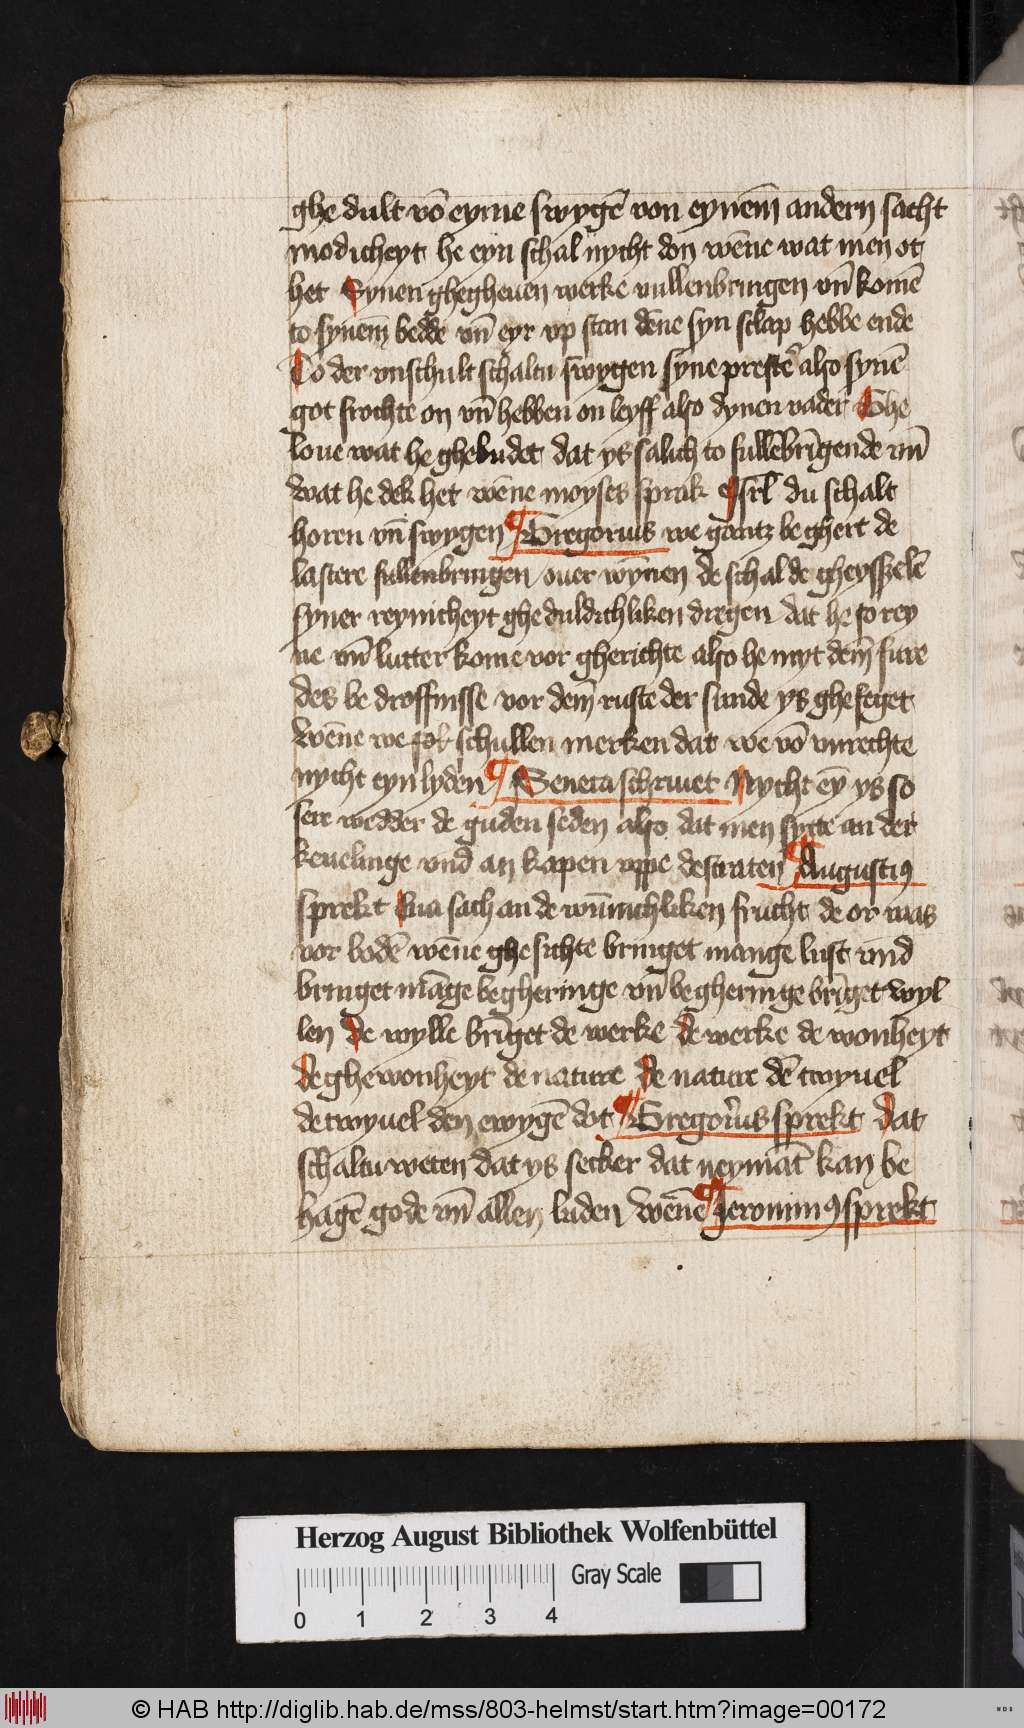 ghe dult vō eyme swygē von eynem̄ andern sacht
modicheyt he eyn schal nycht don wēne wat men ot
het Synen ghegheuen werke vullenbringen vn̄ komē
to synem̄ bedde vn̄ eyr vp stan dēne syn sclap hebbe ende
To der vnschult schaltu swygen syne prester also synē
got frochte on vn̄ hebben on leyff also dynen vader Ghe
loue wat he ghebudet dat ys salich to fullēbrīgende vn̄
wat he dek het wēne moyses sprak Isrl du schalt
horen vn̄ swygen ¶ Gregorius we gantz beghert de
lastere fullenbringen ouer wynnen de schal de gheysszelē
syner reynicheyt ghe duldichliken dregen dat he so rey
ne vn̄ lutter kome vor gherichte also he myt dem̄ fure
des be droffnisse vor dem̄ ruste der sunde ys ghefeget
wēne we sok schullen merken dat we vō vnrechte
nycht eyn lyden ¶ Seneca schriuet Nycht eȳ ys so
sere wedder de guden seden also dat men sytte an der
keuelinge vnd an kapen vppe destraten ¶ Augusti9
sprekt Eua sach an de wūnichliken frucht de or was
vor bodē wēne ghesichte bringet mange lust vnd
bringet māge begheringe vn̄ begheringe brīget wyl
len De wylle brīget de werke De werke de wonheyt
De ghewonheyt de nature De nature dē twyuel
de twyuel den ewygē dot ¶ Gregorius sprekt Dat
schaltu weten dat ys secker dat neymāt kan be
hagē gode vn̄ allen luden wēne ¶ Jeronim9 sprekt
Herzog August Bibliothek Wolfenbüttel
Gray Scale
0 1 2 3 4
© HAB http://diglib.hab.de/mss/803-helmst/start.htm?image=00172